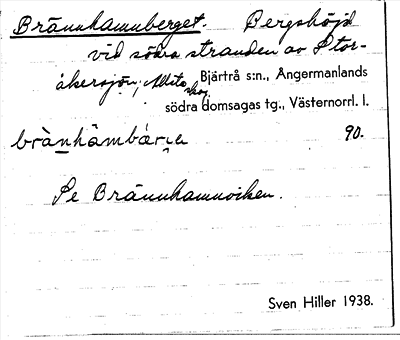 Brännhamnberget. Bergshöjd
vid södra stranden av Stor-
åkersjön, Bjärtrå s:n., Ångermanlands
södra domsagas tg., Västernorrl. l.
brànhámbárjɐ 90.
Se Brännhamnviken.
Sven Hiller 1938.